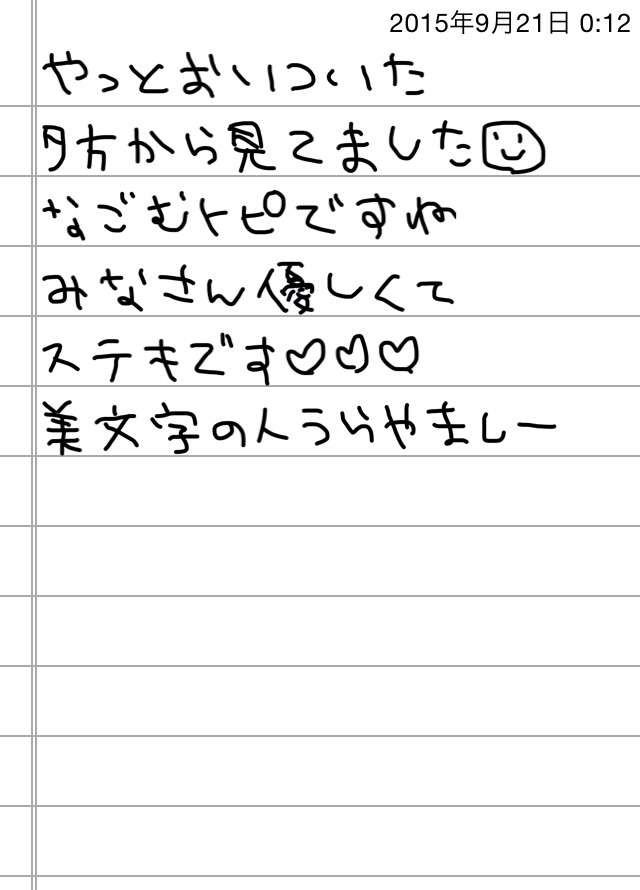 2015年9月21日 0:12
やっとおいついた
夕方から見てました☺
なごむトピですね
みなさん優しくて
ステキです♡♡♡
美文字の人うらやましー